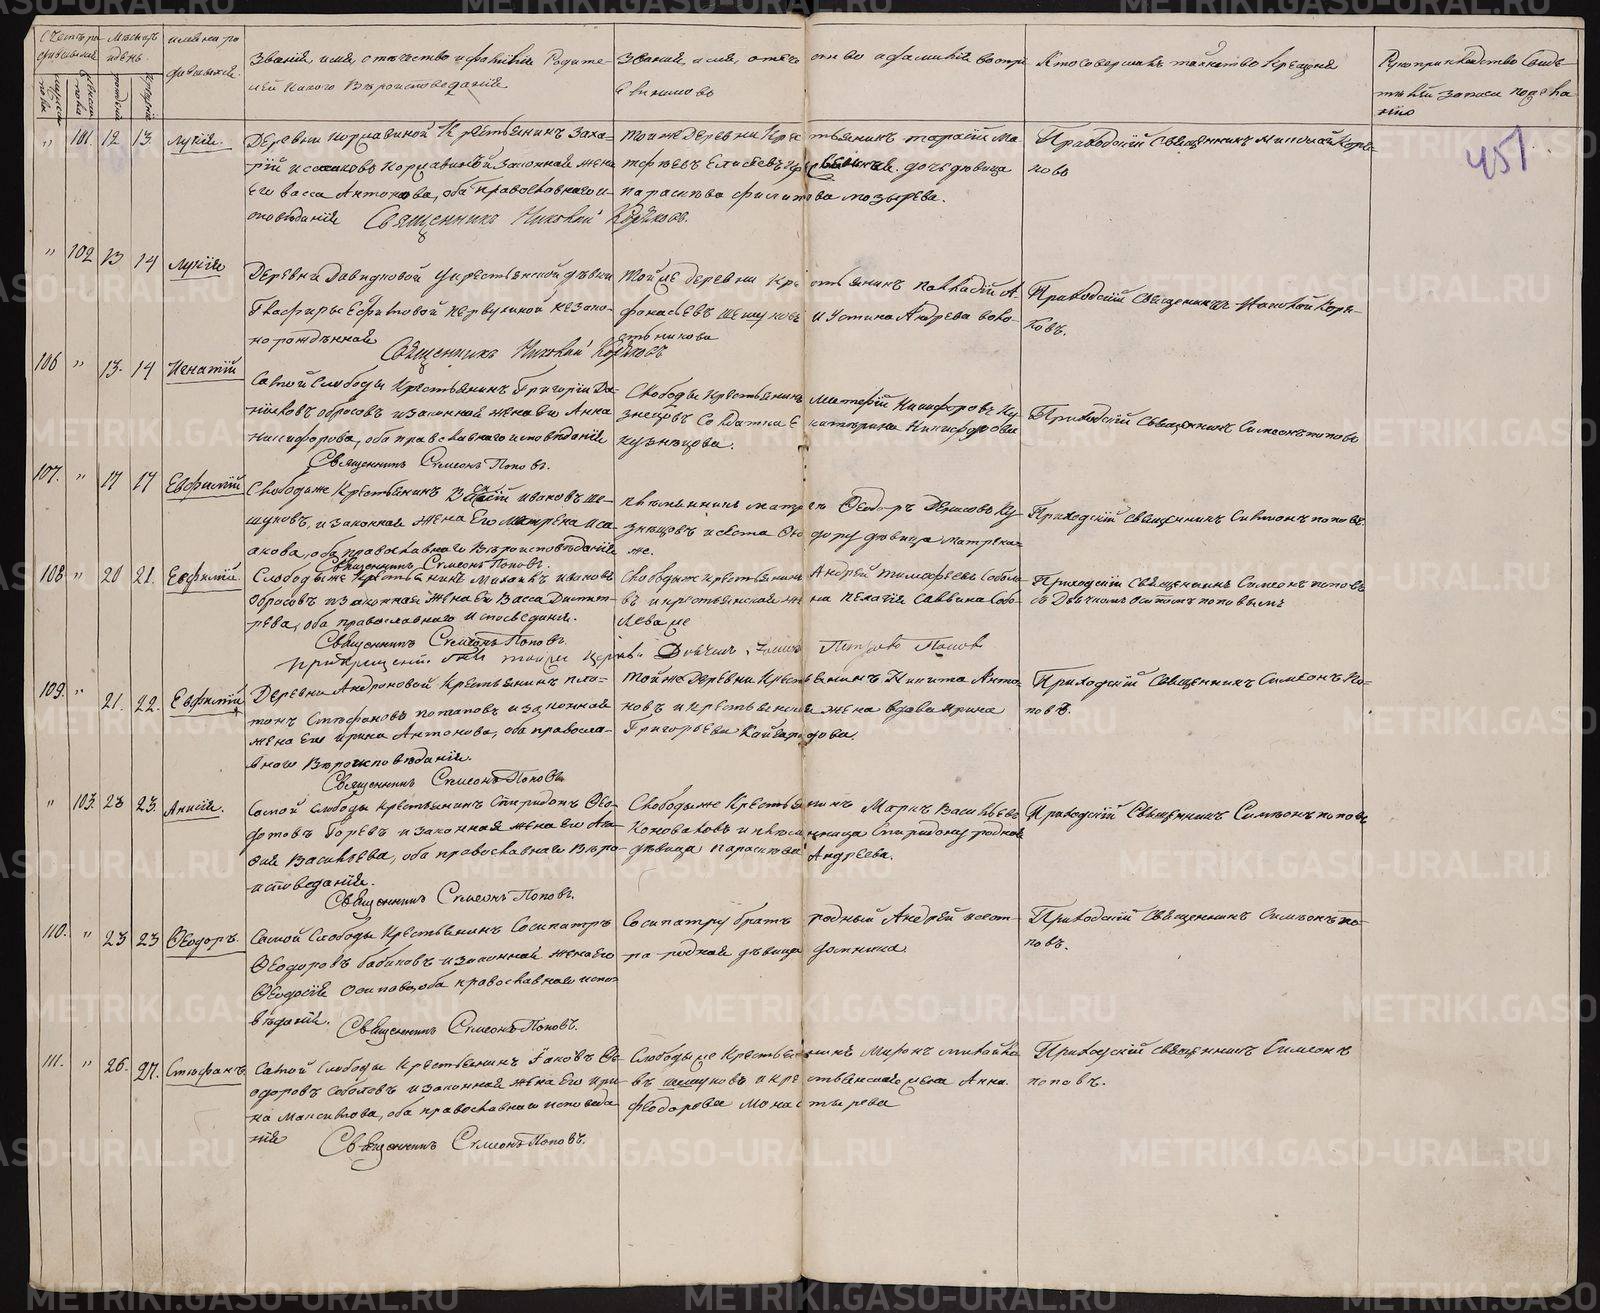 Счетъ ро
Мѣсяцъ
имена ро
Званія, имя, отчество и фамилія Родите-
Званія, имя, отче
ство и фамилія воспрі
Кто совершалъ таинство Крещенія
Рукоприкладство Свидѣ-
дившихся
и день
дившихся.
лей какого Вѣроисповеданія
емниковъ
телей записи по жела
нію
мужеска пола
женска пола
рожденія
крещенія
" 101. 12 13. Лукія.
Деревни Кориавиной Крестьянинъ Заха-
рій Исааковъ Кориавинъ и законная жена
Его Васса Антонова, оба православнаго и-
поведанія
Священникъ Николай Коряковъ.
Той же Деревни Крестьянинъ Тарасій Ма-
девица
Параскева Филипова Мозырева.
Приходскій Священникъ Николай Коря-
ковъ
451
" 102 13 14 Лукія
Деревни Давидковой у крестьянской дѣвки
Гласфиры Ефимовой незако-
норожденная
Священникъ Николай Коряковъ
Той же деревни Крестьянинъ Палладій А-
фонасьевъ Шешуковъ и Устина Андрева
Приходскій Священникъ Николай Коря-
ковъ.
106 " 13. 14 Игнатій
Самой Слободы Крестьянинъ Григорій Да-
ниловъ Обросовъ и законная жена Его Анна
Никифорова, оба православнаго исповѣданія
Священникъ Симеонъ Поповъ.
Слободы Крестьянинъ Матфій Никифоровъ Ку-
знецовъ Солдатка Екатерина Никифорова
Кузнецова.
Приходскій Священникъ Симеонъ Поповъ
107. " 17 17 Евфимій
Слободы же Крестьянинъ Василій Ивановъ Ше-
шуковъ, и законная жена Его Матрена Иса-
акова, оба православнаго Вѣроисповѣданія
Священникъ Симеонъ Поповъ.
племянникъ Матрены Ѳеодоръ Денисовъ Ку-
знецовъ и сестра Ѳеодору дѣвица Матрена-
же.
Приходскій Священникъ Симеонъ Поповъ
108 " 20 21. Евфимій.
Слободы же Крестьянинъ Михаилъ Ивановъ
Обросовъ и законная жена Его Васса Димит-
рева, оба православнаго Исповеданія.
Священникъ Симеонъ Поповъ
При крещеніи былъ Поповъ
Слободы же Крестьянинъ Андрей Тимофеевъ Собол-
въ и крестьянская жена Пелагія Саввина Собо-
лева же
Приходскій Священникъ Симеонъ Поповъ
съ Дьячкомъ Поповымъ
109. " 21. 22. Евфимій
Деревни Андроновой Крестьянинъ Пла-
тонъ Стефановъ Потаповъ и законная
жена Его Ирина Антонова, оба правосла-
внаго Вѣроисповѣданія.
Священникъ Симеонъ Поповъ
Той же Деревни Крестьянинъ Никита Анто-
новъ и Крестьянская жена вдова Ирина
Григорьева Кайгородова.
Приходскій Священникъ Симеонъ По-
повъ.
" 103. 23 23. Анисія.
Самой Слободы Крестьянинъ Спиридонъ Ѳео-
дотовъ Горевъ и законная жена Его
Васильева, оба православнаго Вѣро-
исповеданія.
Священникъ Симеонъ Поповъ.
Слободы же Крестьянинъ Маркъ Васильевъ
Коноваловъ и племянница Спиридону родная
дѣвица Параскева Андреева.
Приходскій Священникъ Симеонъ Поповъ
110. " 23 23 Ѳеодоръ.
Самой Слободы Крестьянинъ Сосипатръ
Ѳеодоровъ Бабиновъ и законная жена Его
Ѳеодосія Осипова, оба православнаго испо-
вѣданія.
Священникъ Симеонъ Поповъ.
Сосипатру братъ родный Андрей и сест-
ра родная дѣвица Домника
Приходскій Священникъ Симеонъ По-
повъ.
111. " 26. 27. Стефанъ
Самой Слободы Крестьянинъ Іаковъ Ѳе-
одоровъ Соболевъ и законная жена Его Ири-
на Максимова, оба православнаго исповеда
нія
Священникъ Симеонъ Поповъ.
Слободы же Крестьянинъ Миронъ Михайло-
въ Шешуковъ и крестьянская жена Анна
Ѳеодорова Монастырева
Приходскій Священникъ Симеонъ
Поповъ.
METRIKI.GASO-URAL.RU